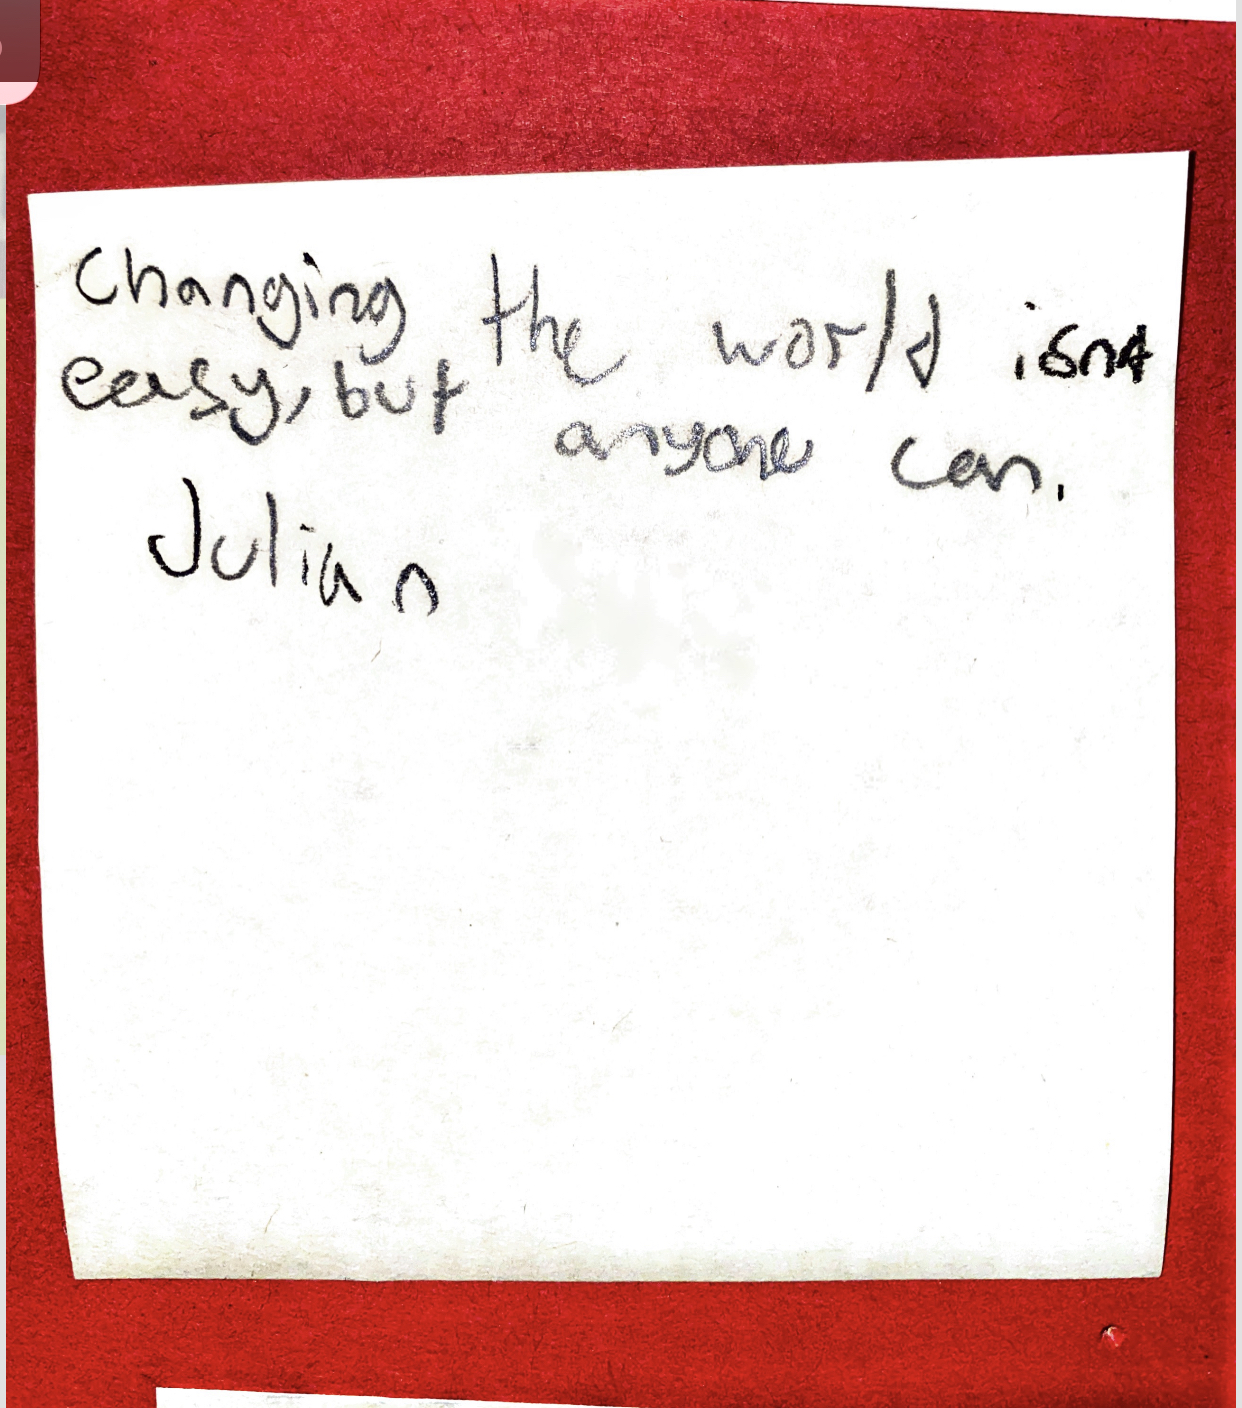 Changing the world isnt
easy, but anyone can.
Julian